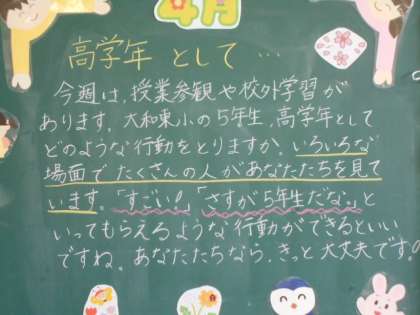 4月
高学年として…
今週は、授業参観や校外学習が
あります。大和東小の5年生、高学年として
どのような行動をとりますか。いろいろな
場面でたくさんの人があなたたちを見て
います。「すごい！」「さすが5年生だな。」と
いってもらえるような行動ができるといい
ですね。あなたたちなら、きっと大丈夫です。